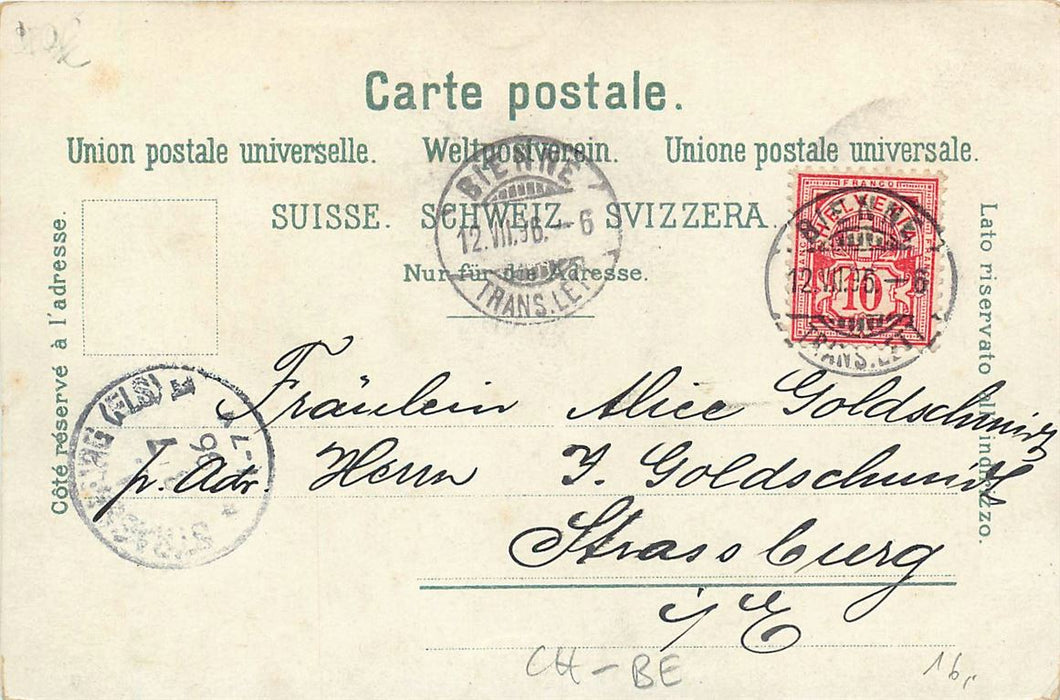 Carte postale.
Union postale universelle. Weltpostverein. Unione postale universale.
SUISSE. SCHWEIZ. SVIZZERA.
Nur für die Adresse.
Côté réservé à l'adresse.
Lato riservato all'indirizzo.
BIENNE
12.VII.96.-6
TRANS.LETT
FRANCO
HELVETIA
10
12.VII.96.-6
TRANS.LETT
Fräulein Alice Goldschmidt
p. Adr. Herrn J. Goldschmidt
Strassburg
i/E
STRASSBURG (ELS)
96
CH-BE
16,